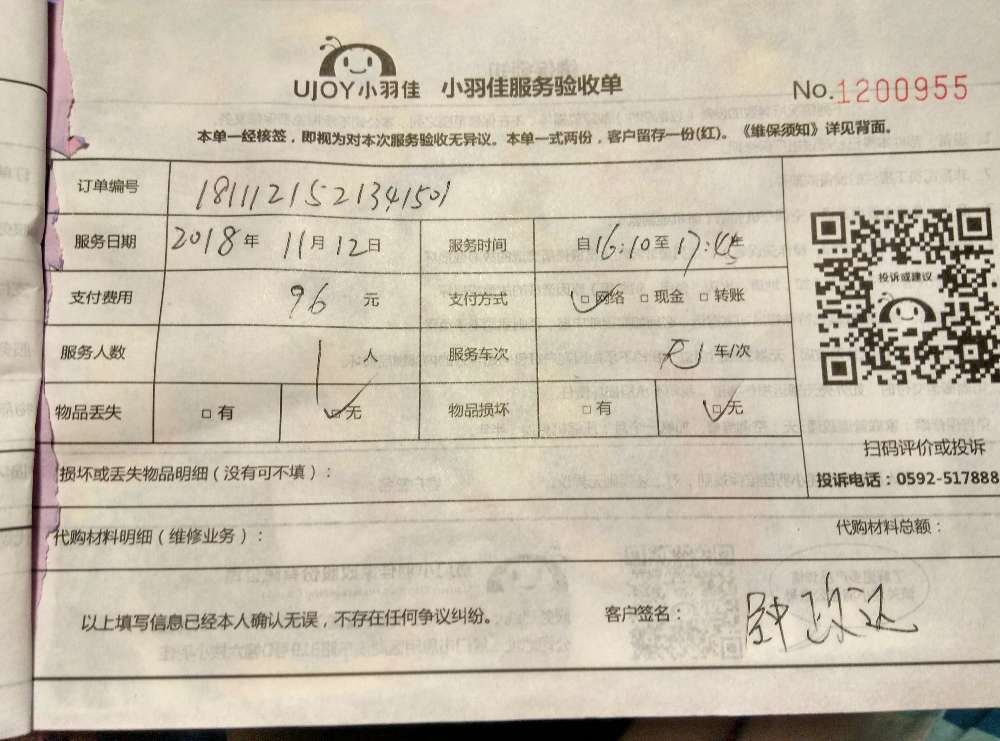 UJOY小羽佳 小羽佳服务验收单 No.1200955
本单一经核签，即视为对本次服务验收无异议。本单一式两份，客户留存一份(红)。《维保须知》详见背面。
订单编号 181112152134 1501
服务日期 2018年 11月12日 服务时间 自16:10至17:45
支付费用 96 元 支付方式 □网络 □现金 □转账
服务人数 1 人 服务车次 车/次
物品丢失 □有 □无 物品损坏 □有 □无
投诉或建议
扫码评价或投诉
损坏或丢失物品明细（没有可不填）：
投诉电话：0592-517888
代购材料明细（维修业务）：
代购材料总额：
以上填写信息已经本人确认无误，不存在任何争议纠纷。 客户签名：钟